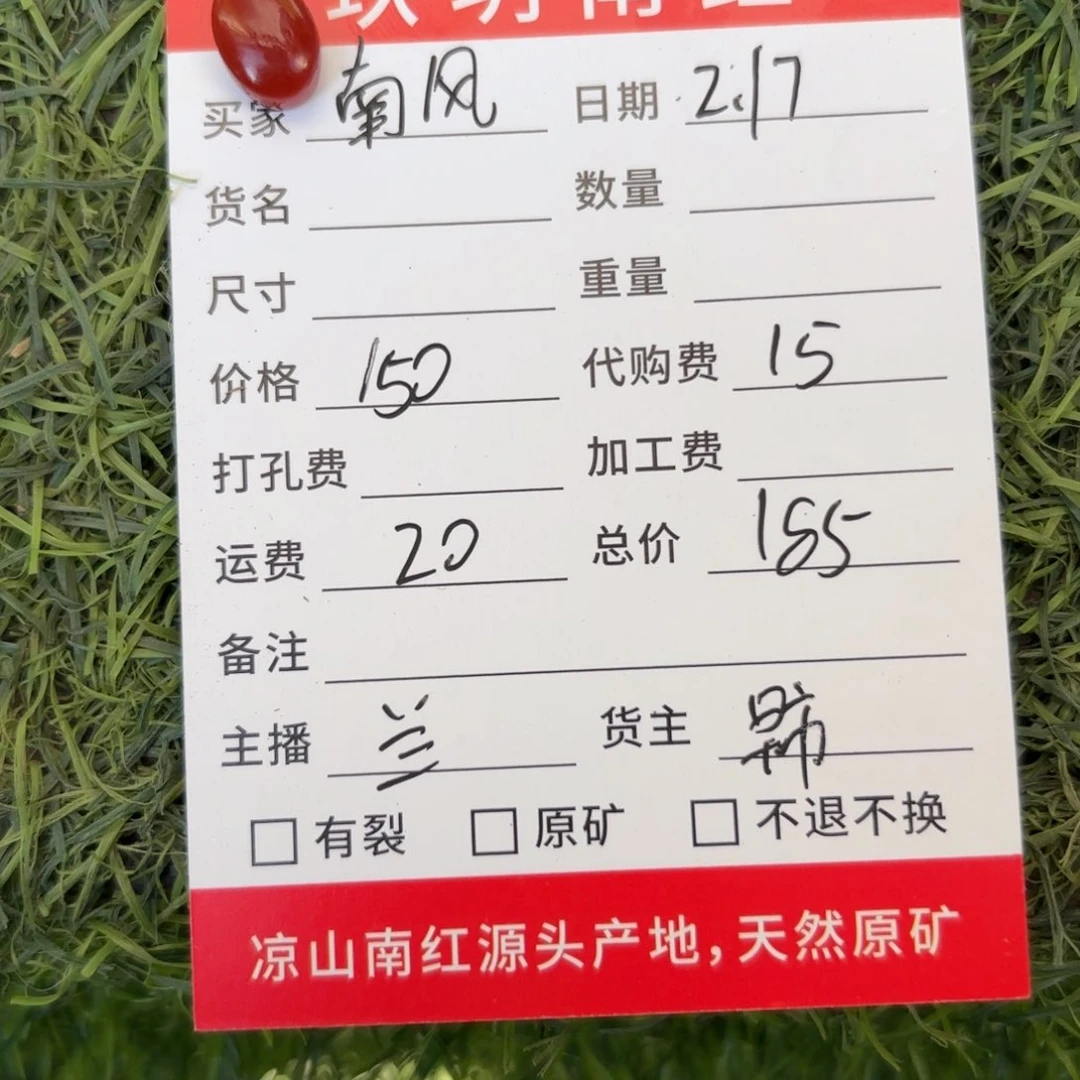 南红
买家 南风 日期 2.17
货名 数量
尺寸 重量
价格 150 代购费 15
打孔费 加工费
运费 20 总价 185
备注
主播 兰 货主
有裂 原矿 不退不换
凉山南红源头产地,天然原矿